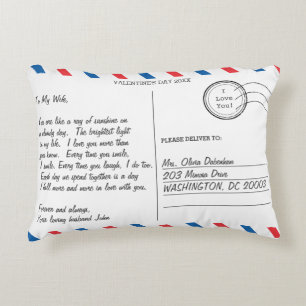 VALENTINE'S DAY 20XX
To My Wife,
are like a ray of sunshine on
cloudy day. The brightest light
in my life. I love you more than
you know. Every time you smile,
I smile. Every time you laugh, I do too.
Each day we spend together is a day
I fall more and more in love with you.
Forever and always,
Your loving husband John
I
Love
You!
PLEASE DELIVER TO:
Mrs. Olivia Debenham
203 Memoria Drive
WASHINGTON, DC 20003